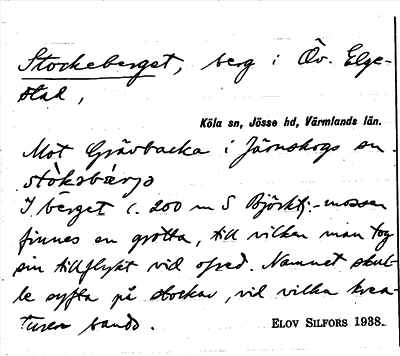 Stockeberget, berg i Öv. Elge-
stal,
Köla sn, Jösse hd, Värmlands län.
Mot Grävbacka i Järnskogs sn.
stòksbæ̀rjə
I berget c. 200 m S Björktj.-mossen
finnes en grotta, till vilken man tog
sin tillflykt vid ofred. Namnet skul-
le syfta på stockar, vid vilka krea-
turen bands.
ELOV SILFORS 1938.